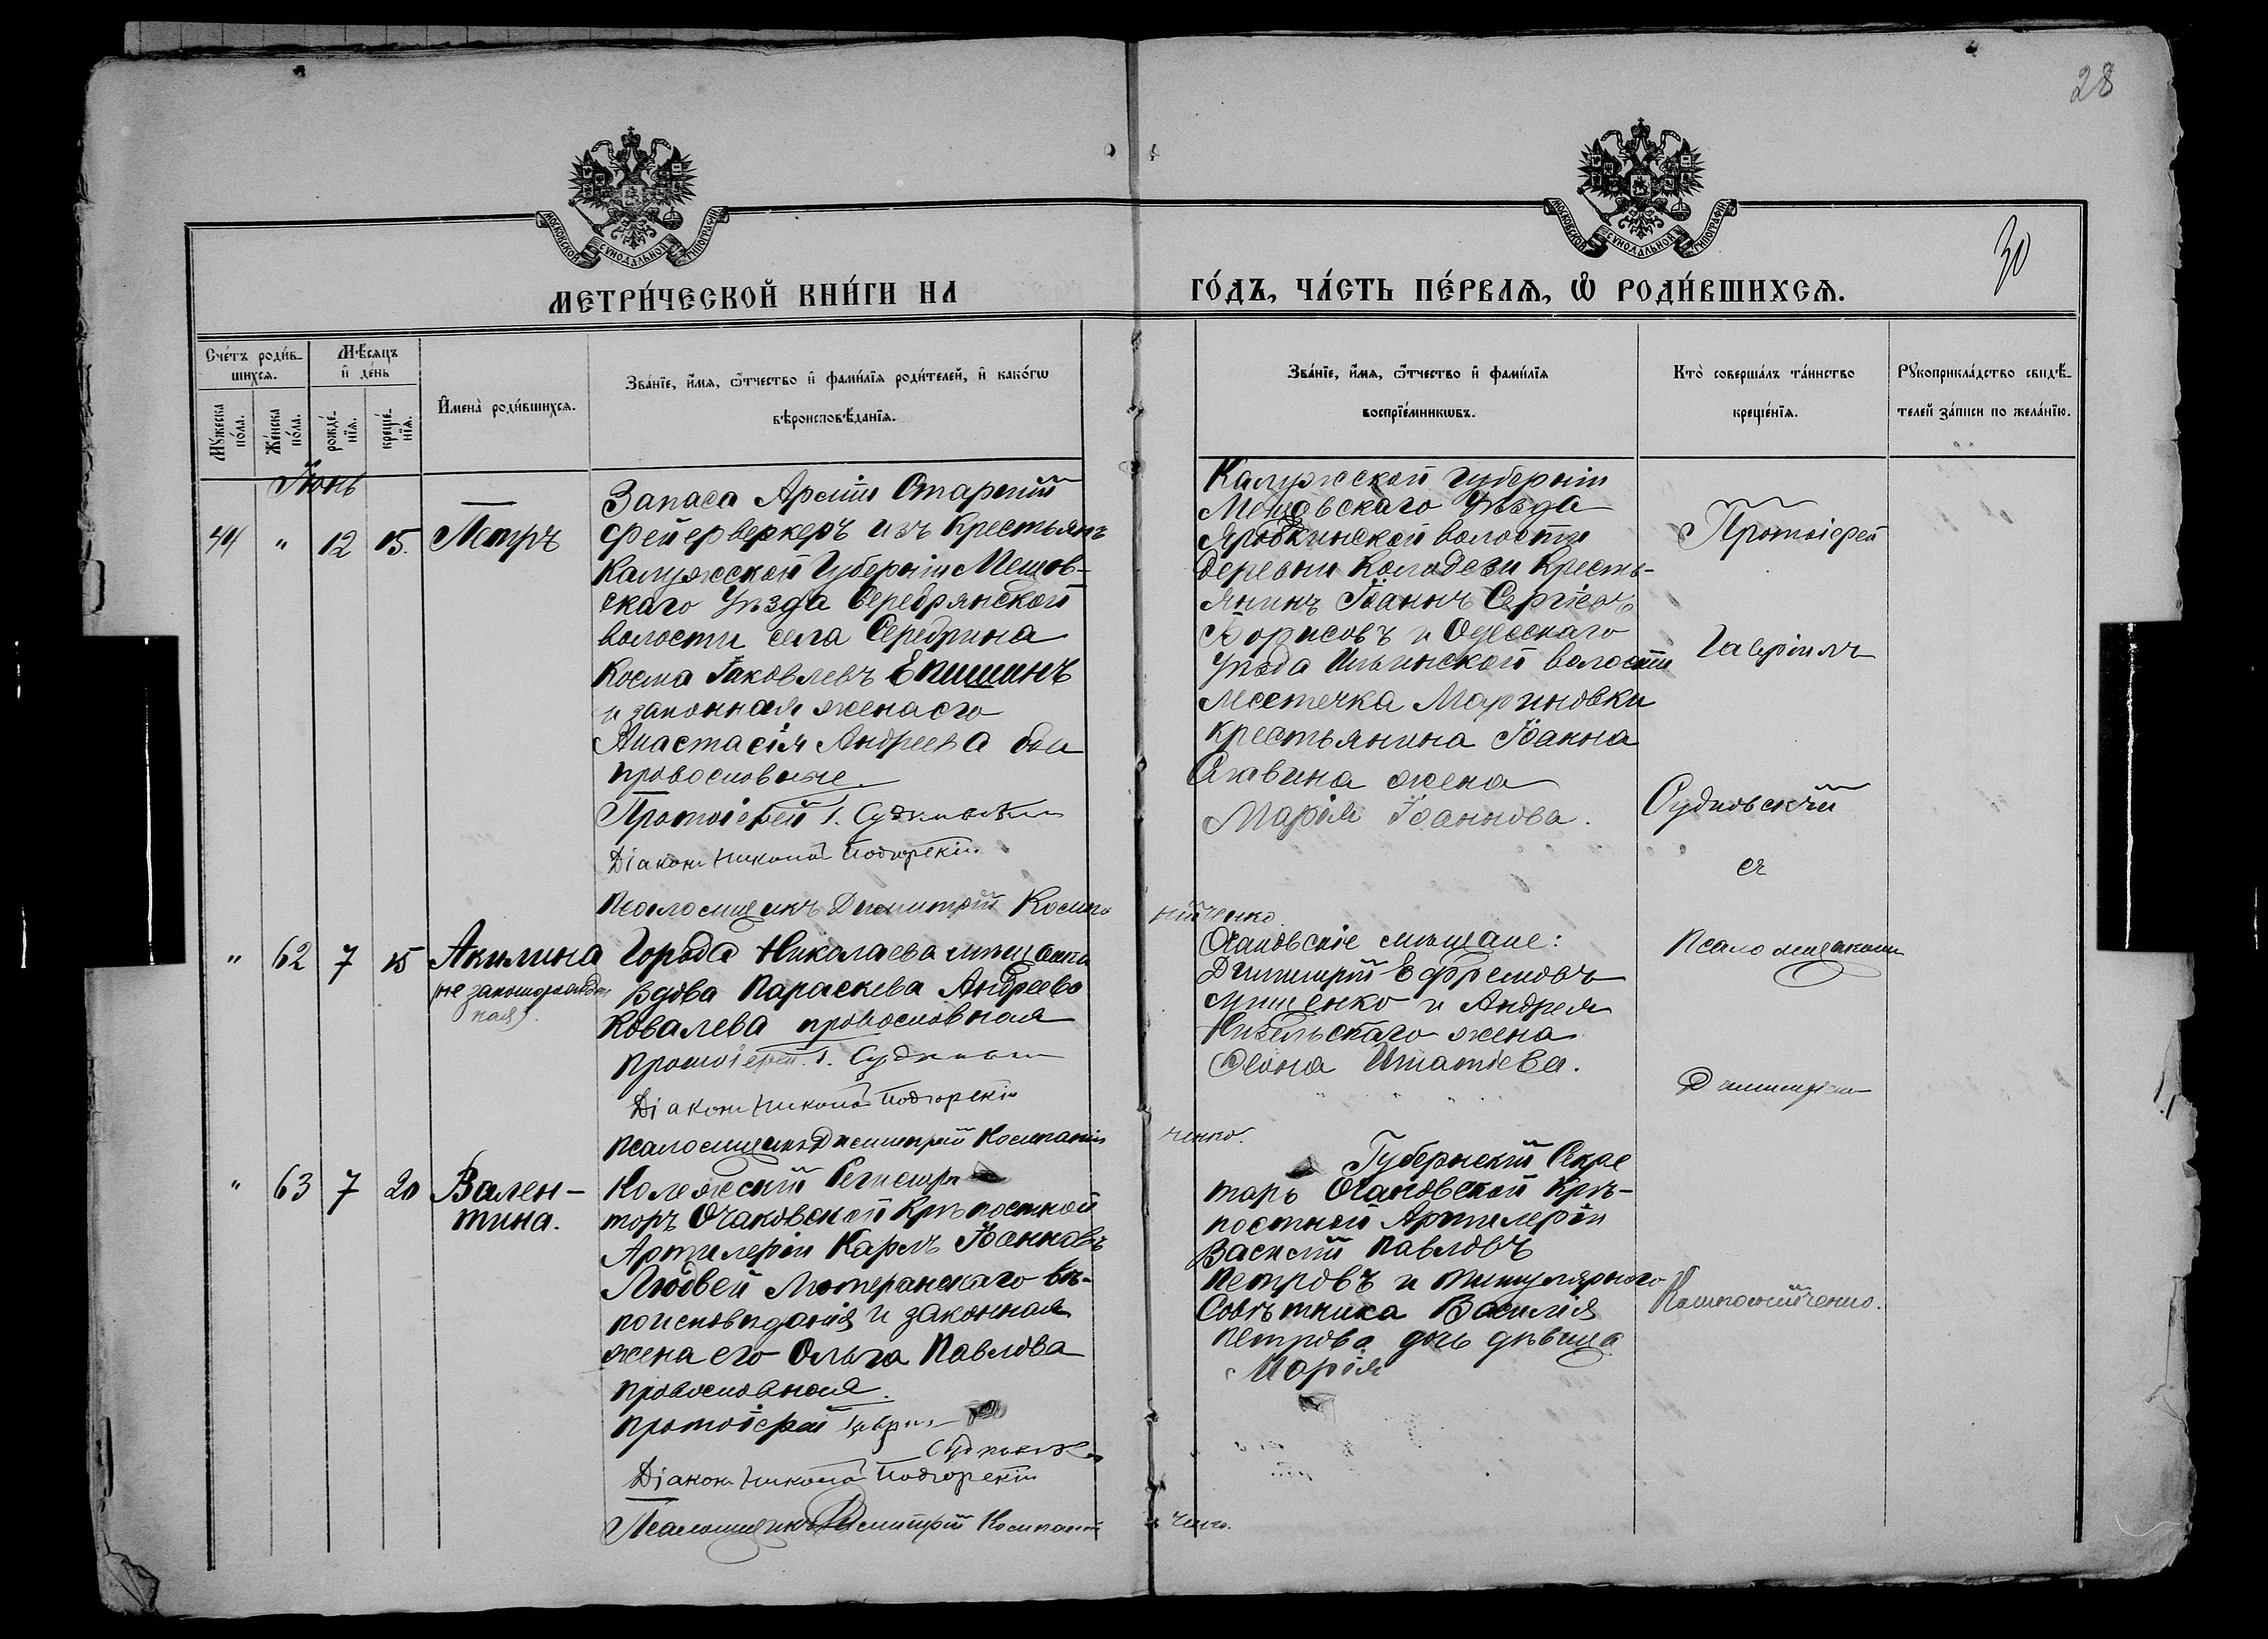 28
30
МОСКОВСКОЙ СУНОДАЛЬНОЙ ТИПОГРАФІИ
МОСКОВСКОЙ СУНОДАЛЬНОЙ ТИПОГРАФІИ
МЕТРИ́ЧЕСКОЙ КНИ́ГИ НА
ГО́ДЪ, ЧА́СТЬ ПЕ́РВАѦ, Ѡ҆ РОДИ́ВШИХСѦ.
Сче́тъ роди́в-
шихсѧ.
Мѣ́сяцъ
и҆ де́нь
Мꙋ́жеска
по́ла.
Же́нска
по́ла.
рожде́-
нїѧ.
креще́-
нїѧ.
И҆мена̀ роди́вшихсѧ.
Зва́нїе, и҆́мѧ, ѻ҆́тчество и҆ фами́лїѧ роди́телей, и҆ како́гѡ
вѣроисповѣ́данїѧ.
Зва́нїе, и҆́мѧ, ѻ҆́тчество и҆ фами́лїѧ
воспрїе́мникѡвъ.
Кто̀ соверша́лъ та́инство
креще́нїѧ.
Рꙋкоприкла́дство свидѣ́-
телей за́писи по жела́нїю.
Іюнь
44 " 12 15. Петръ
Запаса Арміи Старшій
фейерверкеръ изъ крестьянъ
Калужской Губерніи Мещов-
скаго Уѣзда Серебрянской
волости села Серебрина
Косма Іаковлевъ Епишинъ
и законная жена его
Анастасія Андреева оба
православные.
Протоіерей Г. Судковскій
Діаконъ Николай Подгорскій
Псаломщикъ Димитрій Компа
нійченко
Калужской Губерніи
Мещовскаго Уѣзда
волости
деревни Колодези Кресть-
янинъ Іоаннъ Сергіевъ
Борисовъ и Одесскаго
Уѣзда Ильинской волости
местечка Мариновки
крестьянина Іоанна
Саквина жена
Марія Іоаннова.
Протоіерей
Гавріилъ
Судковскій
съ
Псаломщикомъ
Димитріемъ
Компанійченко.
" 62 7 15 Акилина
(не законорожден
ная).
Города Николаева мѣщанка
вдова Параскева Андреева
Ковалева православная
Протоіерей Г. Судковскій
Діаконъ Николай Подгорскій
Псаломщикъ Димитрій Компаній
ченко.
Очаковскіе мѣщане:
Димитрій Ефремовъ
Мищенко и Андрея
жена
Игнатіева.
" 63 7 20 Вален-
тина.
Колежскій Регистра
торъ Очаковской Крѣпостной
Артилеріи Карлъ Іоанновъ
Людвей Лютеранскаго вѣ-
поисповѣданія и законная
жена его Ольга Павлова
православная.
Протоіерей Гавріилъ
Судковскій
Діаконъ Николай Подгорскій
Псаломщикъ Димитрій Компаній
ченко.
Губернскій Секре
тарь Очаковской Крѣ-
постной Артилеріи
Василій Павловъ
Петровъ и титулярного
Совѣтника Василія
Петрова дочь дѣвица
Марія